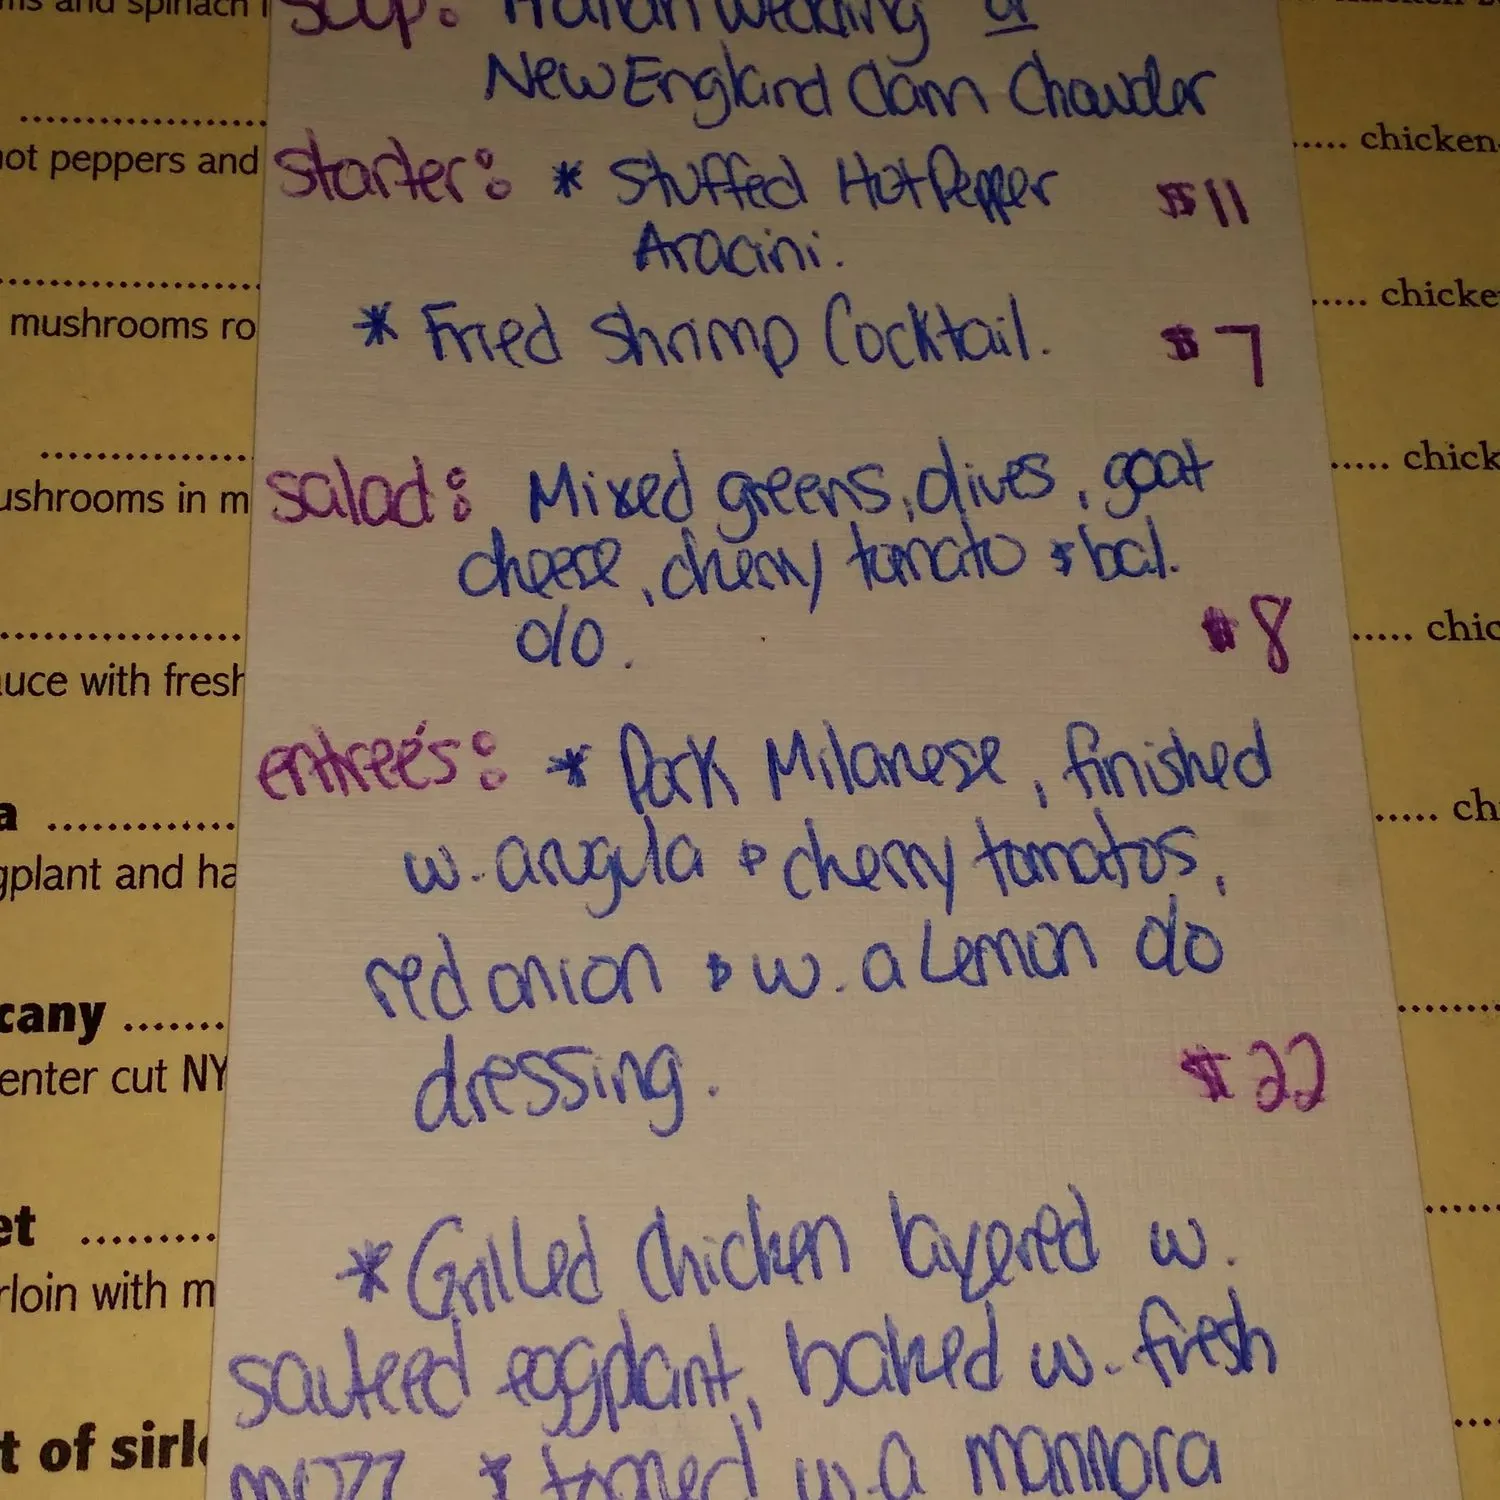 ms and spinach
hot peppers and
mushrooms ro
ushrooms in m
auce with fresh
a ..............
gplant and ha
cany .......
enter cut NY
et .........
rloin with m
t of sirlo
soup: Italian Wedding or
New England Clam Chowder
starter: * Stuffed Hot Pepper $11
Aracini.
* Fried Shrimp Cocktail. $7
salad: Mixed greens, olives, goat
cheese, cherry tomato & bal.
o/o. $8
entreés: * Pork Milanese, finished
w. arugula & cherry tomatos,
red onion & w. a Lemon o/o
dressing. $22
* Grilled Chicken layered w.
sauteed eggplant, baked w. fresh
mozz & topped w. a marinara
..... chicken
..... chicke
..... chick
..... chic
..... ch